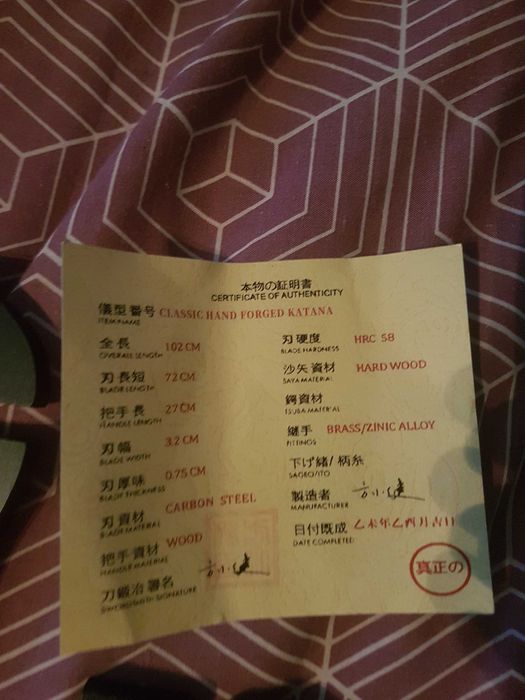 本物の証明書
CERTIFICATE OF AUTHENTICITY
儀型番号 CLASSIC HAND FORGED KATANA
ITEM NAME
全長 102 CM
OVERALL LENGTH
刃長短 72 CM
BLADE LENGTH
把手長 27 CM
HANDLE LENGTH
刃幅 3.2 CM
BLADE WIDTH
刃厚味 0.75 CM
BLADE THICKNESS
刃資材 CARBON STEEL
BLADE MATERIAL
把手資材 WOOD
HANDLE MATERIAL
刀鍛冶署名
SWORDSMITH SIGNATURE
刃硬度 HRC 58
BLADE HARDNESS
沙矢資材 HARD WOOD
SAYA MATERIAL
鍔資材
TSUBA MATERIAL
継手 BRASS/ZINIC ALLOY
FITTINGS
下げ緒/柄糸
SAGEO/ITO
製造者
MANUFACTURER
日付既成 乙未年乙酉月吉日
DATE COMPLETED
真正の